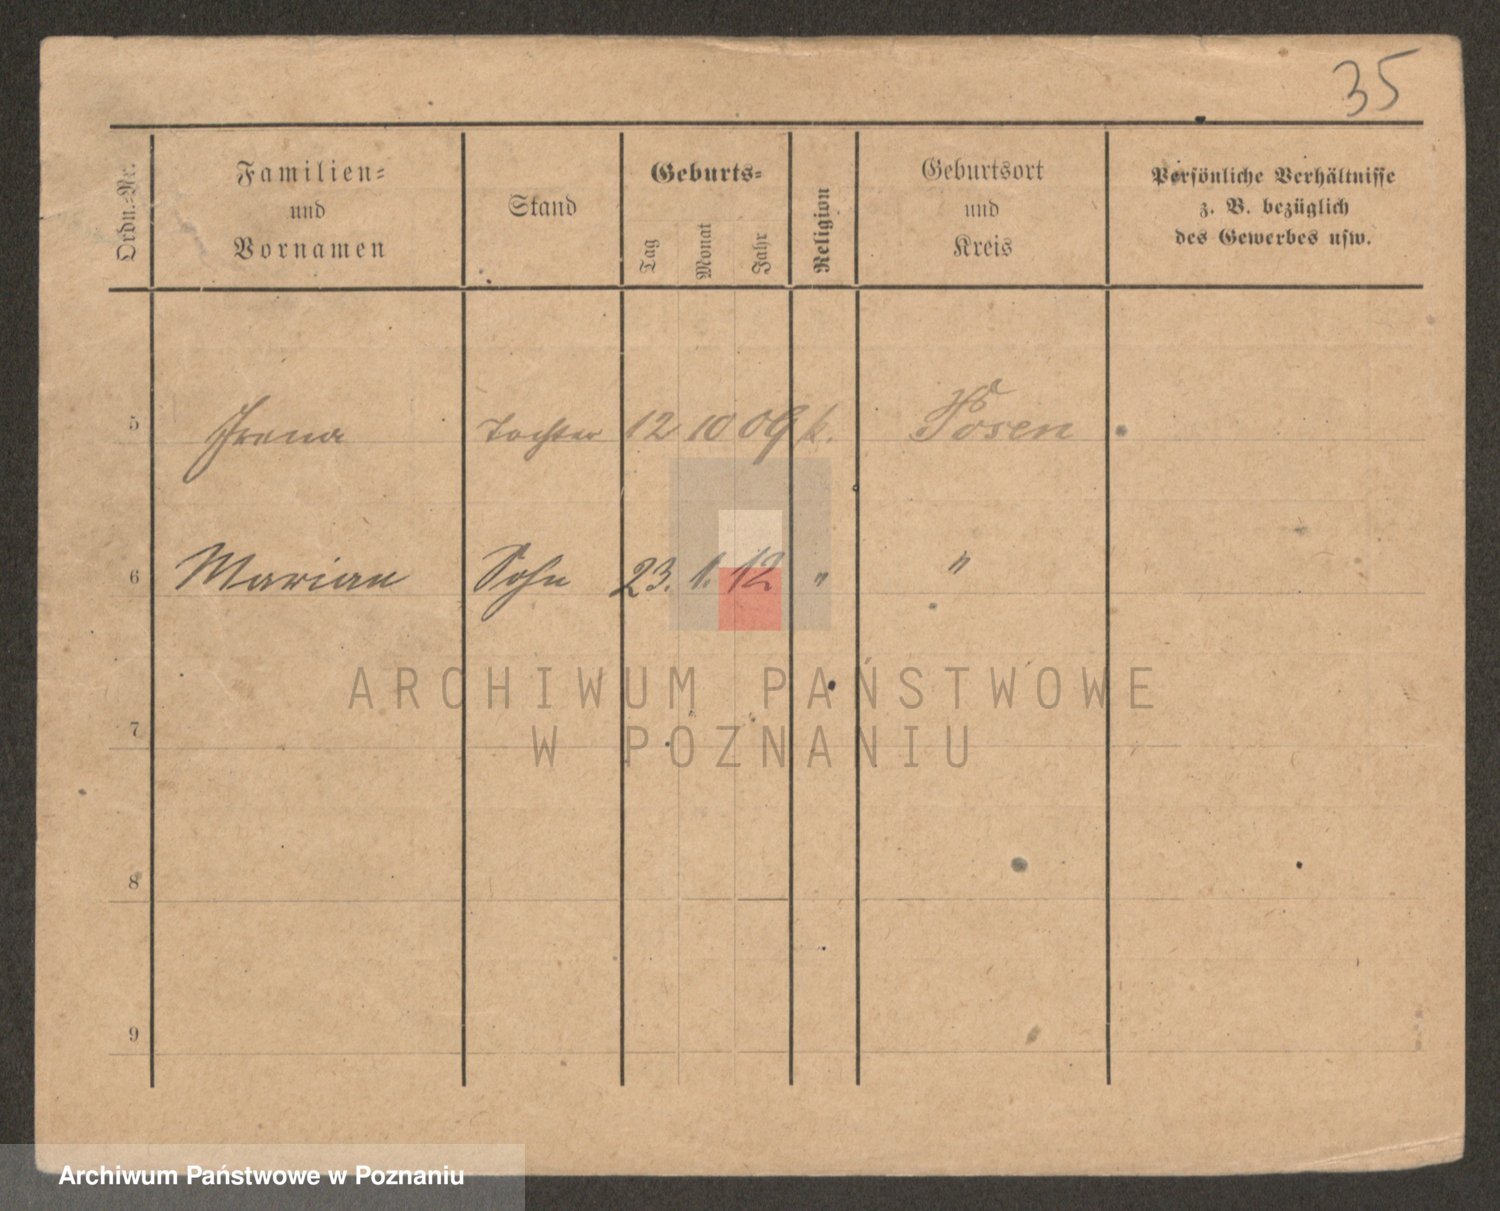 35
Ordn.-Nr.
Familien-
und
Vornamen
Stand
Geburts-
Tag
Monat
Jahr
Religion
Geburtsort
und
Kreis
Persönliche Verhältnisse
z. B. bezüglich
des Gewerbes usw.
5 Irena Tochter 12 10 09 k. Posen
6 Marian Sohn 23. 1. 12 " "
7
8
9
ARCHIWUM PAŃSTWOWE
W POZNANIU
Archiwum Państwowe w Poznaniu